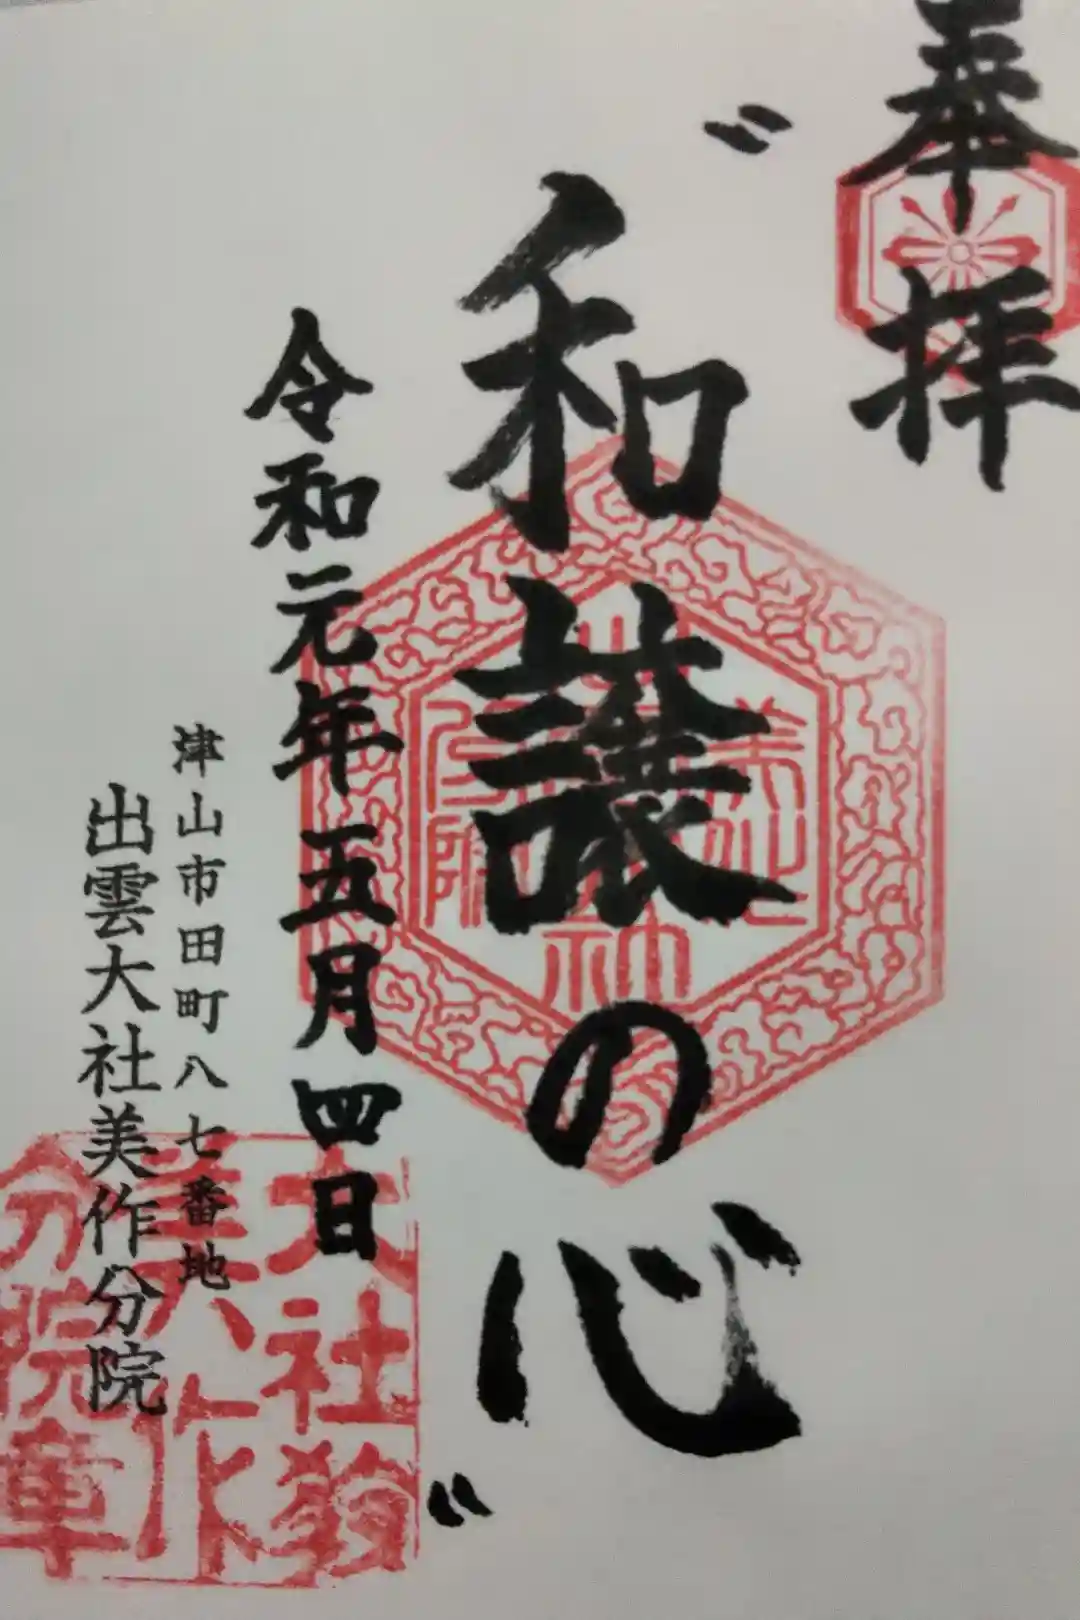 奉拝
〝和譲の心〟
令和元年五月四日
津山市田町八七番地
出雲大社美作分院
大社教
美作
分院章